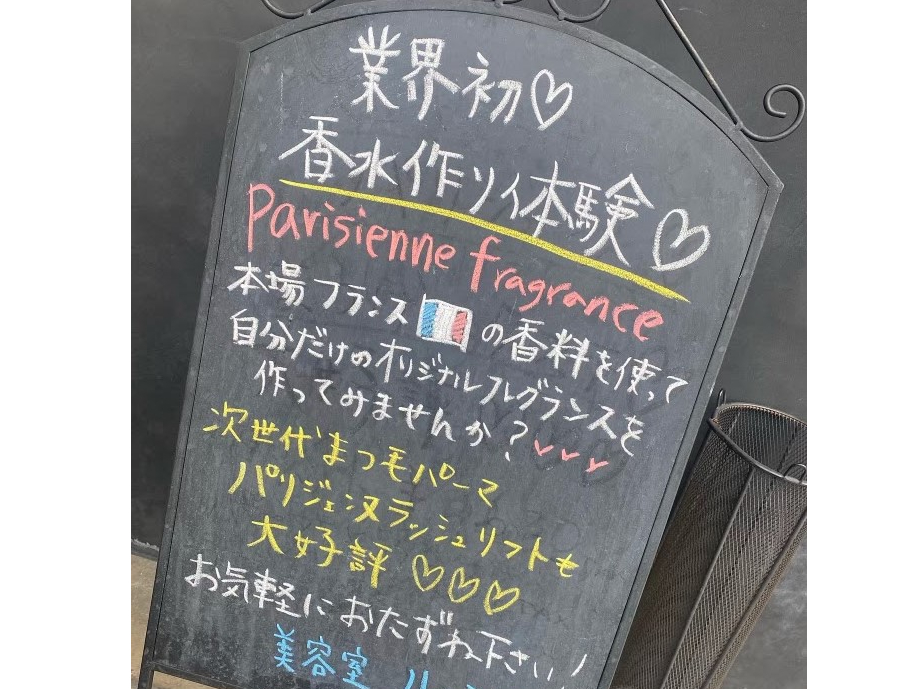 業界初♡
香水作り体験♡
Parisienne fragrance
本場フランス🇫🇷の香料を使って
自分だけのオリジナルフレグランスを
作ってみませんか?
次世代まつ毛パーマ
パリジェンヌラッシュリフトも
大好評♡♡♡
お気軽におたずね下さい!
美容室